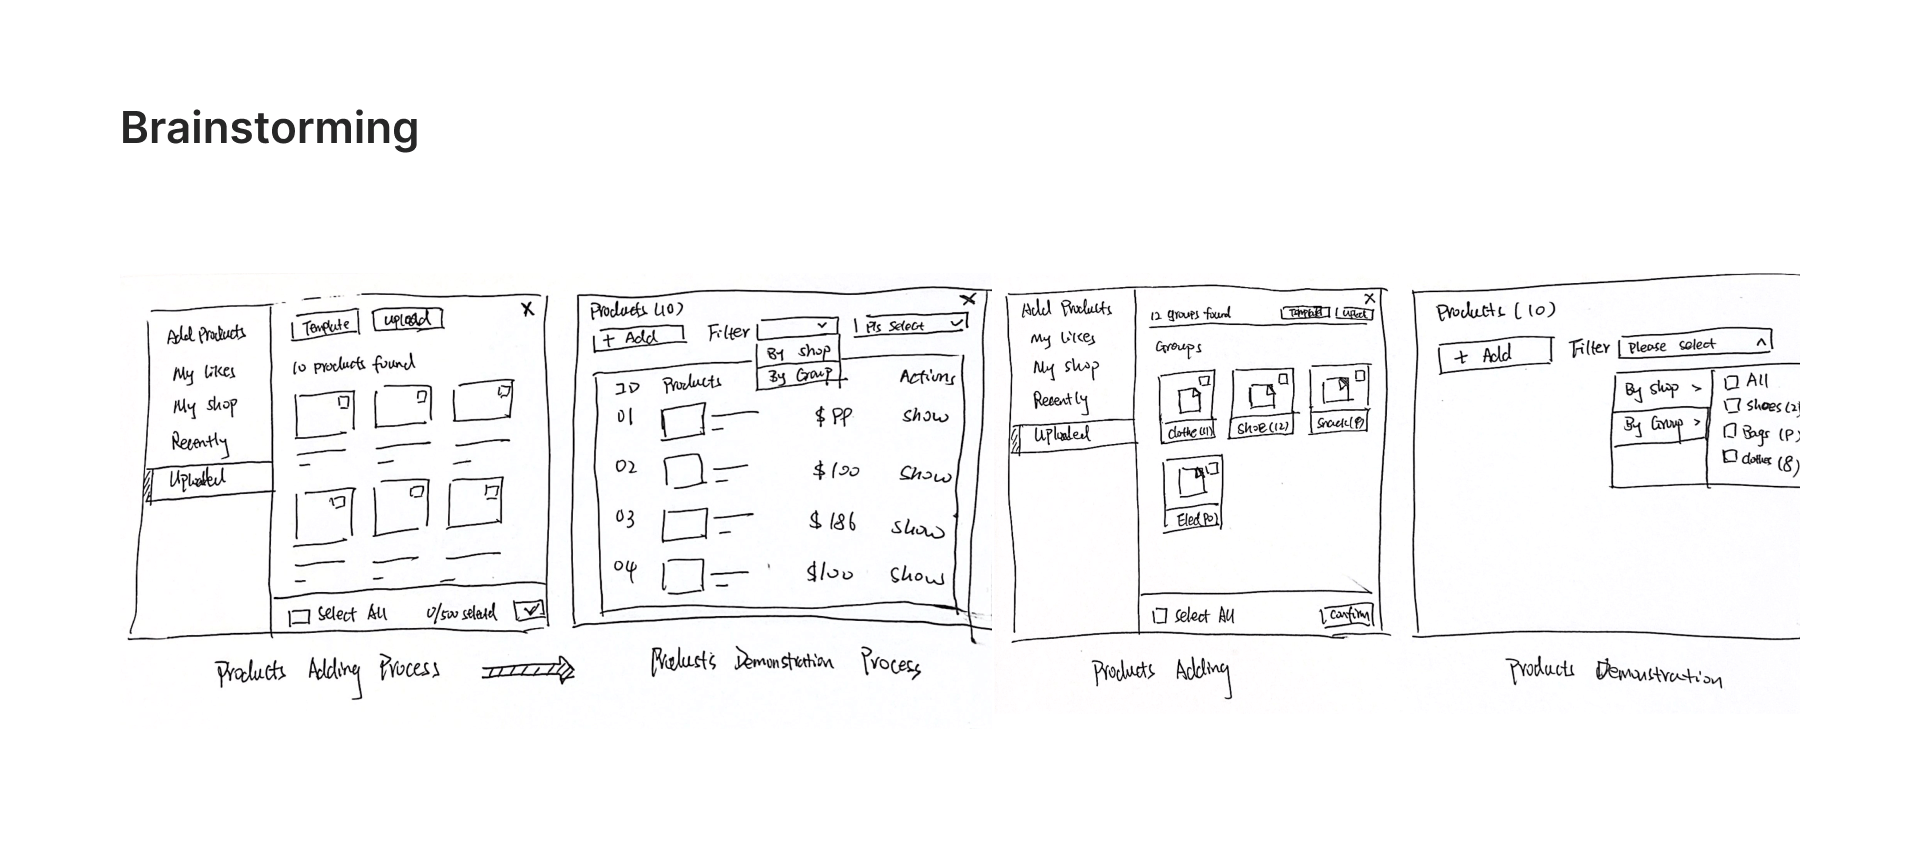 Brainstorming
Add Products
My likes
My shop
Recently
Uploaded
Template
upload
X
10 products found
Select All
0/500 selectd
Products Adding Process
Products (10)
X
+ Add
Filter
Pls Select
By shop
By Group
ID Products Actions
01 $ PP show
02 $100 show
03 $186 show
04 $100 show
Demonstration Process
Add Products
My likes
My shop
Recently
Uploaded
12 groups found
X
Groups
clothe(11)
shoe(12)
Select All
Confirm
Products Adding
Products (10)
+ Add
Filter
Please select
By shop >
By Group >
All
Shoes (2)
Bags (P)
clothes (8)
Products Demonstration